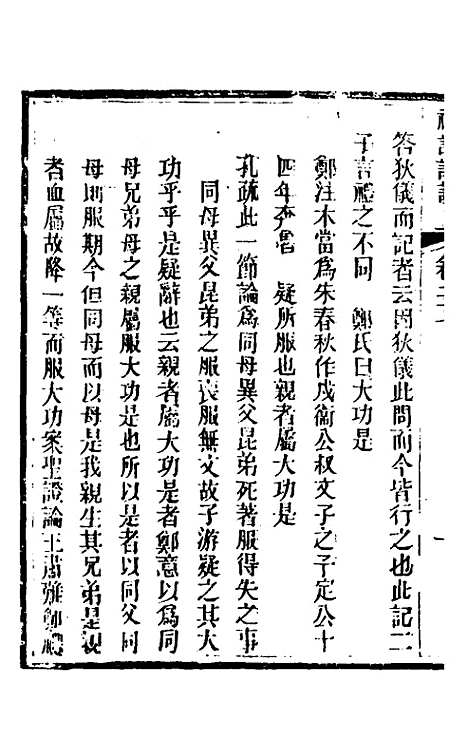 答狄儀而記者云因狄儀此問而今皆行之也此記二
子言禮之不同　鄭氏曰大功是
鄭注木當爲朱春秋作戍衞公叔文子之子定公十
四年奔魯　疑所服也親者屬大功是
孔疏此一節論爲同母異父昆弟死著服得失之事
同母異父昆弟之服喪服無文故子游疑之其大
功乎乎是疑辭也云親者屬大功是者鄭意以爲同
母兄弟母之親屬服大功是也所以是者以同父同
母則服期今但同母而以母是我親生其兄弟是親
者血屬故降一等而服大功案聖證論王肅難鄭禮